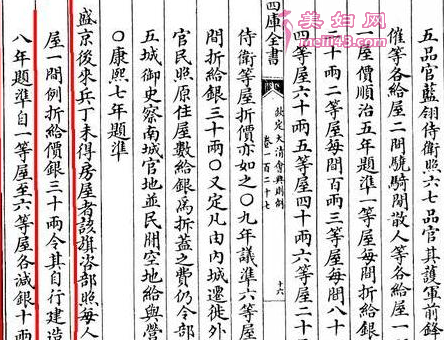 五品官藍翎侍衛六七品官其護軍前鋒
催等各給屋二間驍騎閒散人等各給屋一
一屋價順治五年題準一等屋每間折給銀
二十兩二等屋每間百兩三等屋每間八十
四等屋六十兩五等屋四十兩六等屋二十
四庫全書
欽定大清會典則例
卷一百二十七
十六
侍衛等屋折價亦如之〇九年議準六等屋
間折給銀三十兩〇又定凡由內城遷徙外
官民照原住屋數給銀爲折蓋之費仍令部
五城御史察南城官地並民閒空地給與營
〇康熙七年題準
盛京後來兵丁未得房屋者該旗咨部照每人
屋一間例折給價銀三十兩令其自行建造
八年題準自一等屋至六等屋各減銀十兩
美妇网
meifu01.com